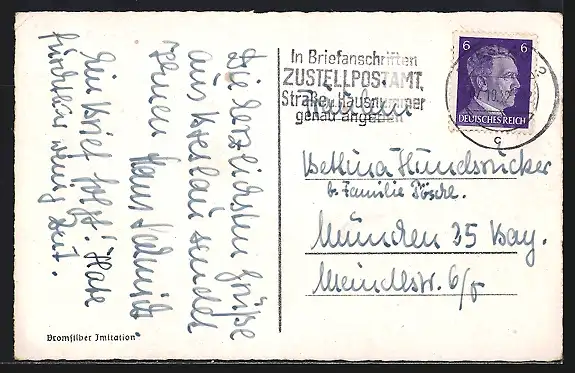 Die herzlichsten Grüße
aus Breslau sendet
Ihnen Hans
Ein Brief folgt! Habe
furchtbar wenig Zeit.
Bromsilber Imitation
In Briefanschriften
ZUSTELLPOSTAMT,
Straße, Hausnummer
genau angeben
Fräulein
Bettina Hundsrucker
b. Familie Pösche.
München 25 Bay.
Meindlstr. 6/
6 6
DEUTSCHES REICH
g